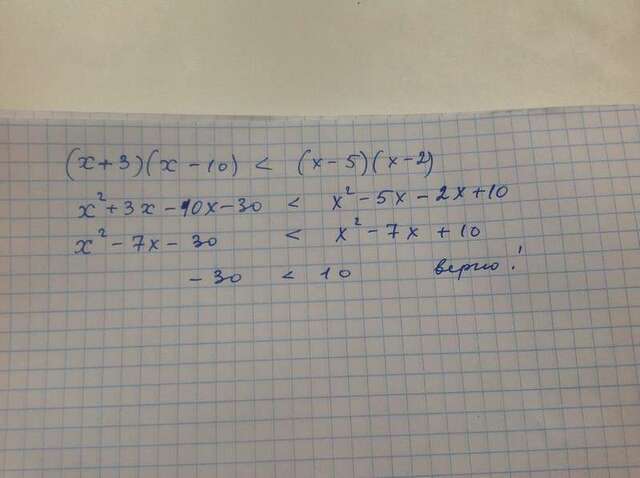 (x+3)(x-10) < (x-5)(x-2)
x²+3x-10x-30 < x²-5x-2x+10
x²-7x-30 < x²-7x+10
-30 < 10 верно!